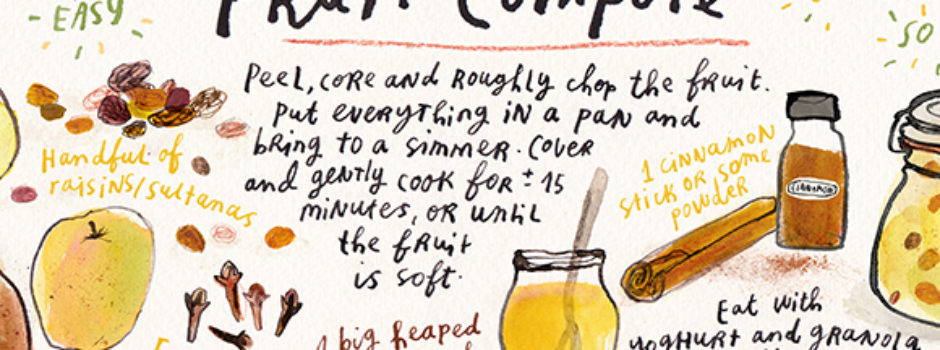 - EASY
Fruit Compote
SO
Peel, core and roughly chop the fruit.
Put everything in a pan and
bring to a simmer. Cover
and gently cook for ± 15
minutes, or until
the fruit
is soft.
Handful of
raisins/sultanas
1 cinnamon
stick or some
powder
CINNAMON
1 big heaped
Eat with
yoghurt and granola